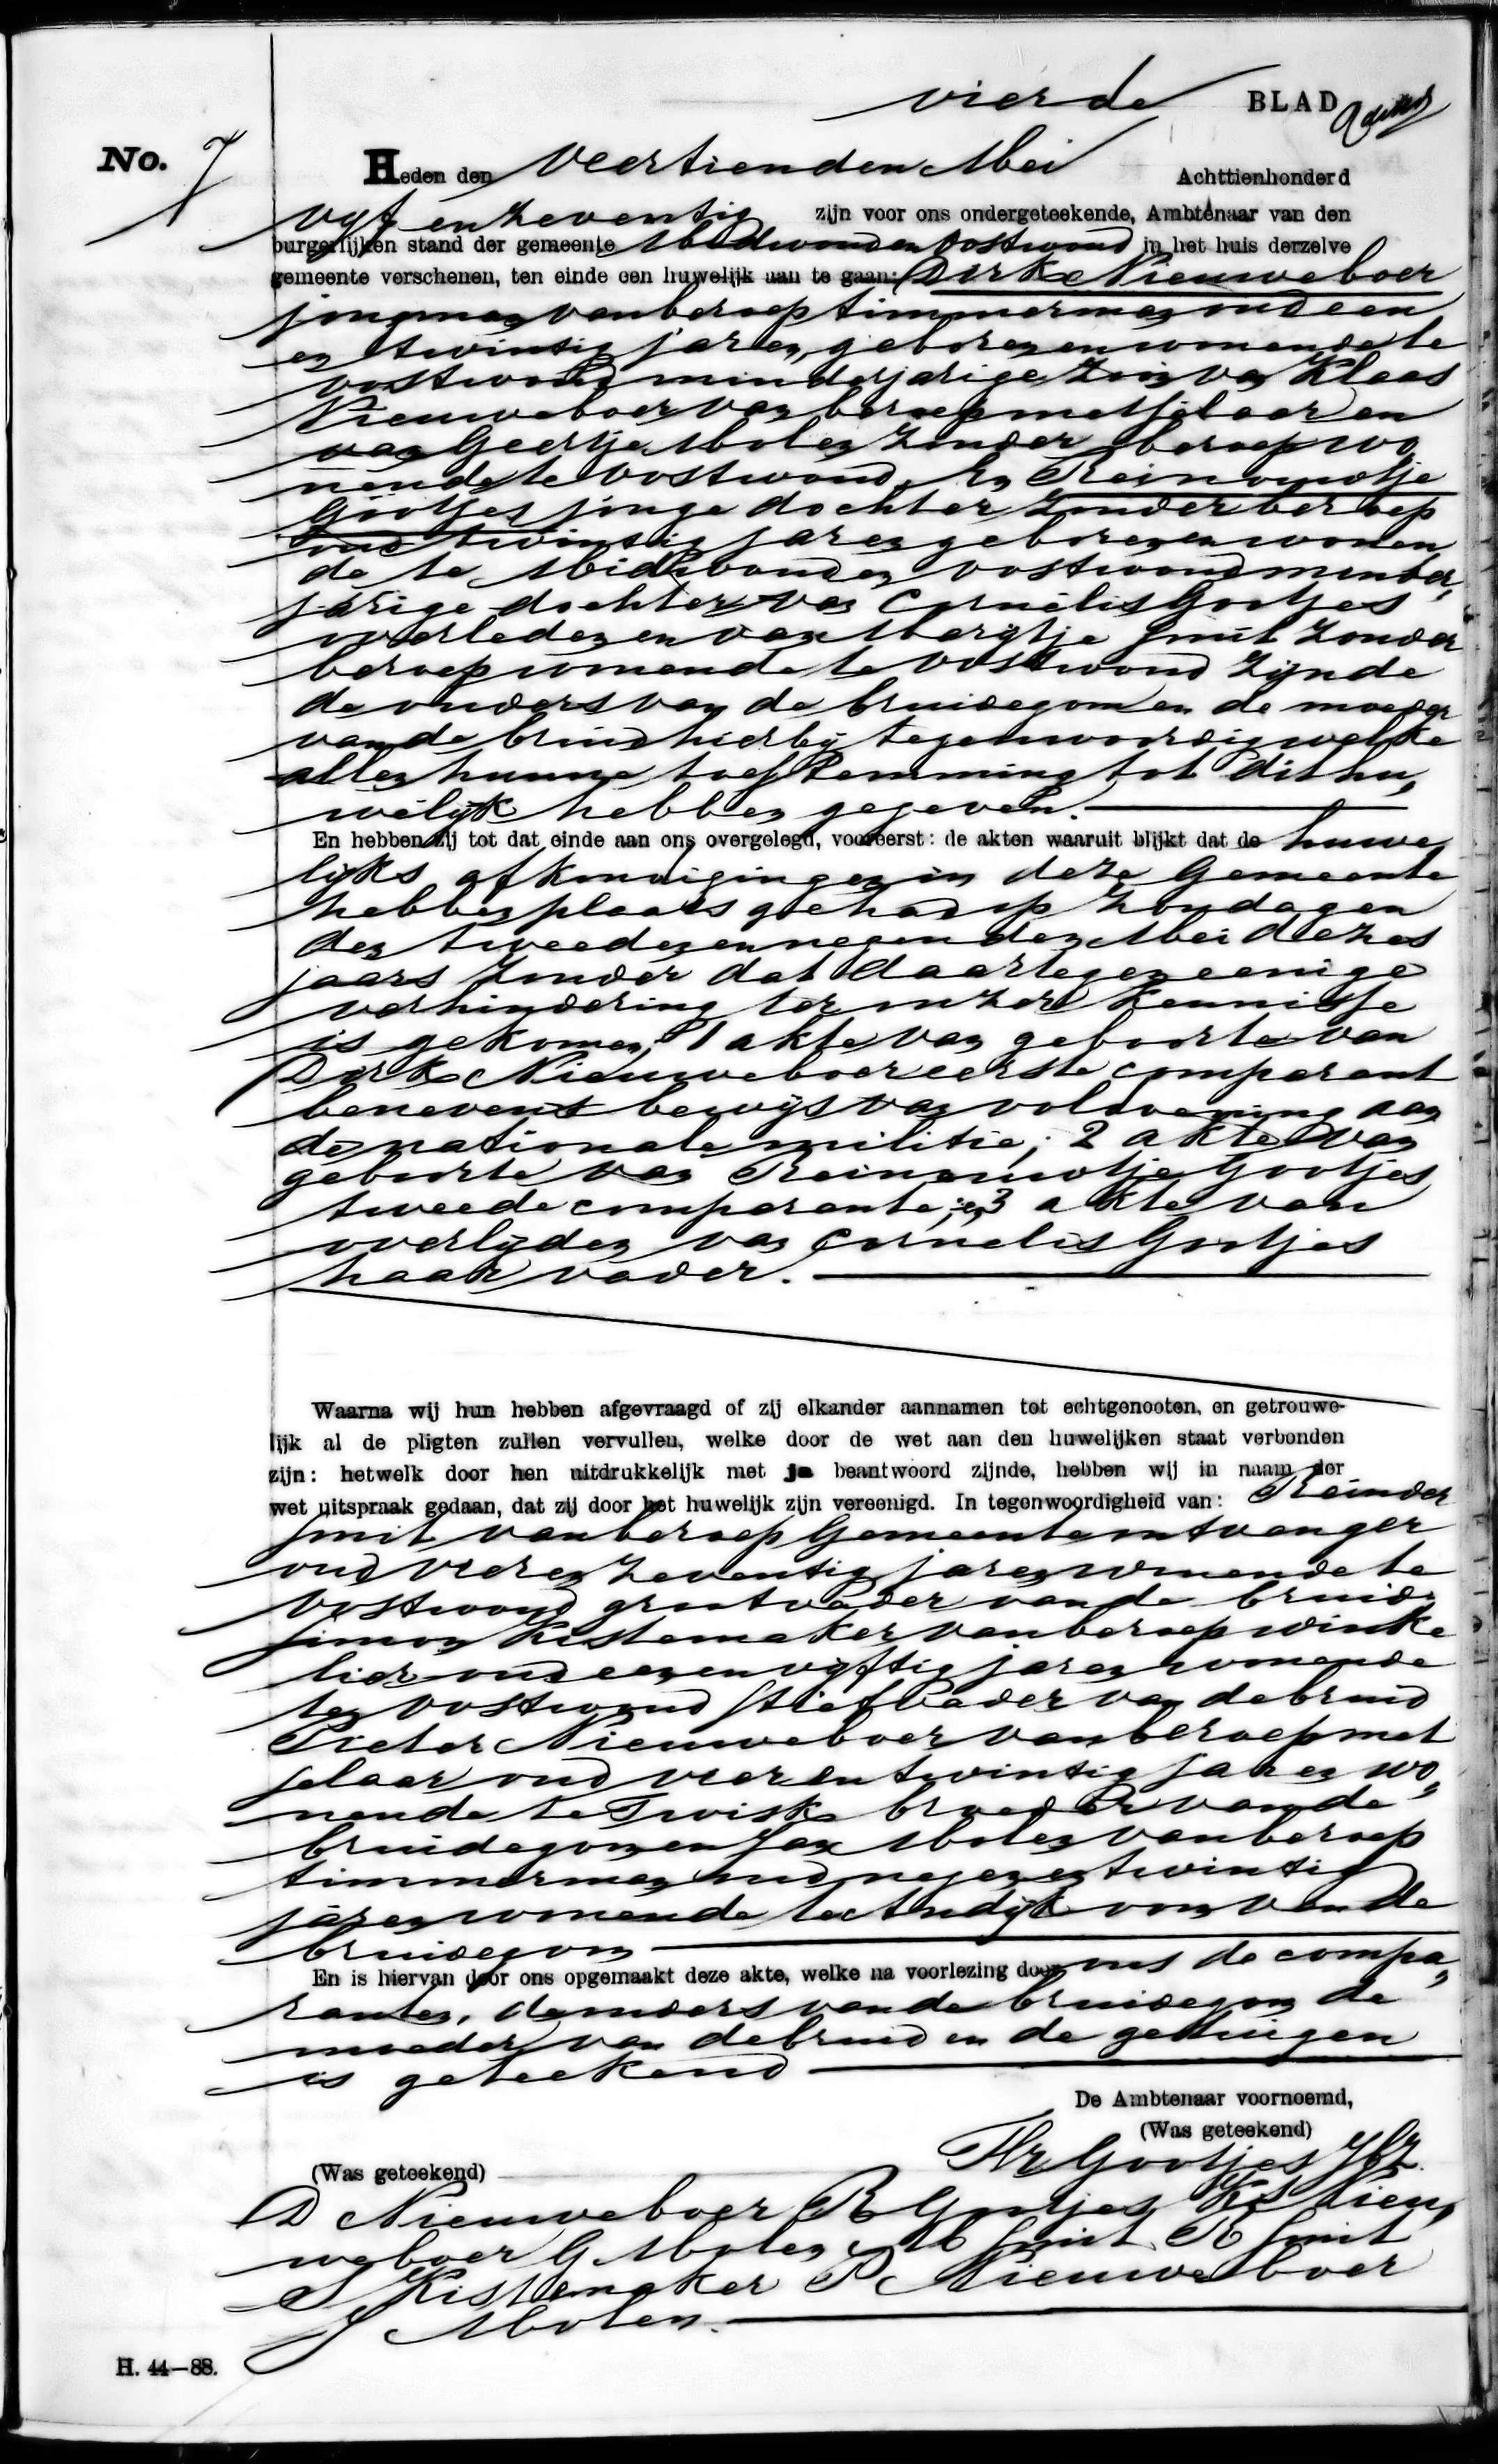 vierde BLAD
No. 7 Heden den Veertienden Mei Achttienhonderd
vyf en zeventig zijn voor ons ondergeteekende, Ambtenaar van den
burgerlijken stand der gemeente Midwoud en Oostwoud in het huis derzelve
gemeente verschenen, ten einde een huwelijk aan te gaan: Dirk Nieuweboer
jongman van beroep timmerman oud een
en twintig jaren, geboren en wonende te
Oostwoud minderjarige zoon van Klaas
Nieuweboer van beroep metselaar en
van Geertje Molen zonder beroep wo„
nende te Oostwoud, En Reinoudtje
Gootjes jonge dochter zonder beroep
oud twintig jaren geboren en wonen
de te Midwoud en Oostwoud minder„
jarige dochter van Cornelis Gootjes
overleden en van Marijtje Smit zonder
beroep wonende te Oostwoud zijnde
de ouders van de bruidegom en de moeder
van de bruid hierbij tegenwoordig welke
allen hunne toestemming tot dit hu„
welijk hebben gegeven.
En hebben zij tot dat einde aan ons overgelegd, vooreerst: de akten waaruit blijkt dat de huwe
lijks afkondigingen in deze Gemeente
hebben plaats gehad op Zondagen
den tweeden en negenden Mei dezes
jaars zonder dat daartegen eenige
verhindering ter onzer kennisse
is gekomen; 1 akte van geboorte van
Dirk Nieuweboer eerste comparant
benevens bewijs van voldoening aan
de nationale militie; 2 akte van
geboorte van Reinoudtje Gootjes
tweede comparante; en 3 akte van
overlijden van Cornelis Gootjes
haar vader.
Waarna wij hun hebben afgevraagd of zij elkander aannamen tot echtgenooten, en getrouwe-
lijk al de pligten zullen vervullen, welke door de wet aan den huwelijken staat verbonden
zijn: hetwelk door hen uitdrukkelijk met ja beantwoord zijnde, hebben wij in naam der
wet uitspraak gedaan, dat zij door het huwelijk zijn vereenigd. In tegenwoordigheid van: Reinder
Smit van beroep Gemeenteontvanger
oud vier en zeventig jaren wonende te
Oostwoud grootvader van de bruid,
Simon Kistemaker van beroep winke
lier oud een en vijftig jaren wonende
te Oostwoud stiefvader van de bruid
Pieter Nieuweboer van beroep met
selaar oud vier en twintig jaren wo„
nende te Twisk broeder van de
bruidegom en Jan Molen van beroep
timmerman oud negen en twintig
jaren wonende te Andijk oom van de
bruidegom
En is hiervan door ons opgemaakt deze akte, welke na voorlezing door ons de compa„
ranten, de ouders van de bruidegom de
moeder van de bruid en de getuigen
is geteekend
De Ambtenaar voornoemd,
(Was geteekend)
Gootjes
(Was geteekend)
D Nieuweboer R Gootjes Ks Nieu„
weboer G Molen M Smit R Smit
S Kistemaker P Nieuweboer
J Molen.
H. 44—88.